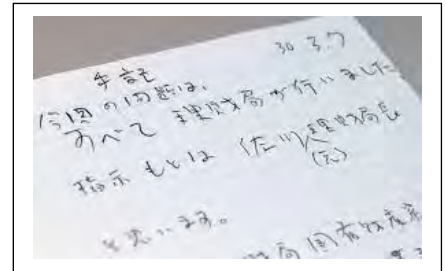 30.3.7
手記
今回の問題は、
すべて理財局が行いました
指示もとは佐川理財局長
(元)
と思います。
局国有財産